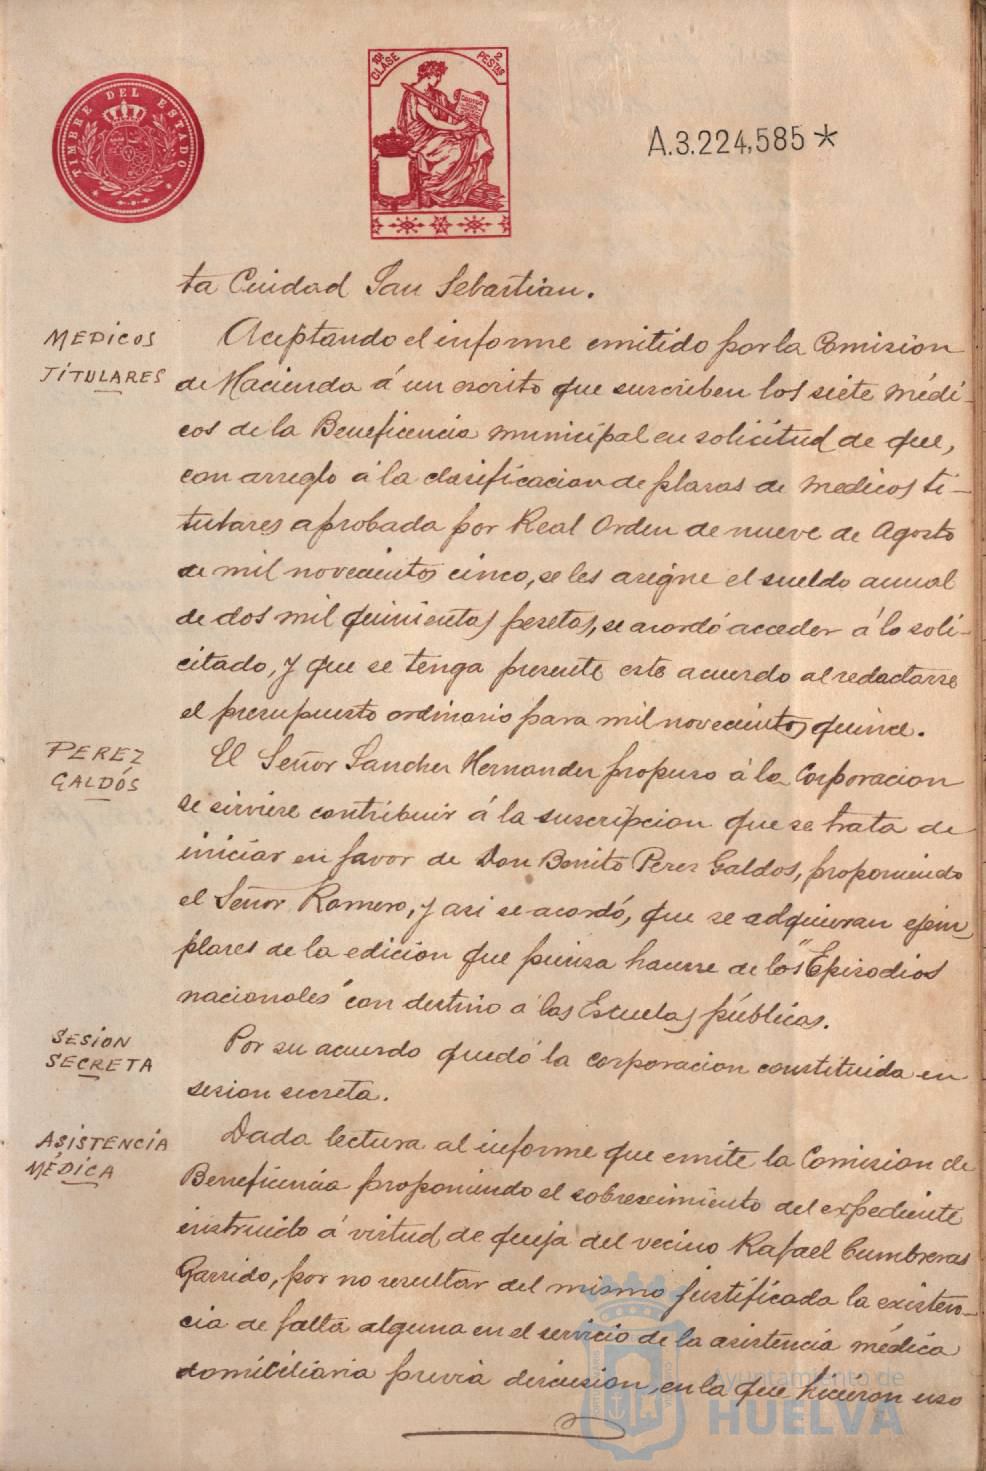 TIMBRE DEL ESTADO
10ª CLASE
2 PESTAS
A.3.224,585*
ta Ciudad San Sebastian.
MEDICOS
TITULARES
Aceptando el informe emitido por la Comision
de Hacienda á un escrito que suscriben los siete médi-
cos de la Beneficencia municipal en solicitud de que,
con arreglo á la clasificacion de plazas de medicos ti-
tulares aprobada por Real Orden de nueve de Agosto
de mil novecientos cinco, se les asigne el sueldo anual
de dos mil quinientas pesetas, se acordó acceder á lo soli-
citado, y que se tenga presente este acuerdo al redactarse
el presupuesto ordinario para mil novecientos quince.
PEREZ
GALDÓS
El Señor Sanchez Hernandez propuso á la Corporacion
se sirviese contribuir á la suscripcion que se trata de
iniciar en favor de Don Benito Perez Galdos, proponiendo
el Señor Romero, y asi se acordó, que se adquieran ejem-
plares de la edicion que piensa hacerse de los "Episodios
nacionales" con destino a las Escuelas públicas.
SESION
SECRETA
Por su acuerdo quedó la corporacion constituida en
sesion secreta.
ASISTENCIA
MÉDICA
Dada lectura al informe que emite la Comision de
Beneficencia proponiendo el sobreseimiento del expediente
instruido á virtud de queja del vecino Rafael Cumbreras
Garrido, por no resultar del mismo justificada la existen-
cia de falta alguna en el servicio de la asistencia médica
domiciliaria previa discusion, en la que hicieron uso
Ayuntamiento de
HUELVA